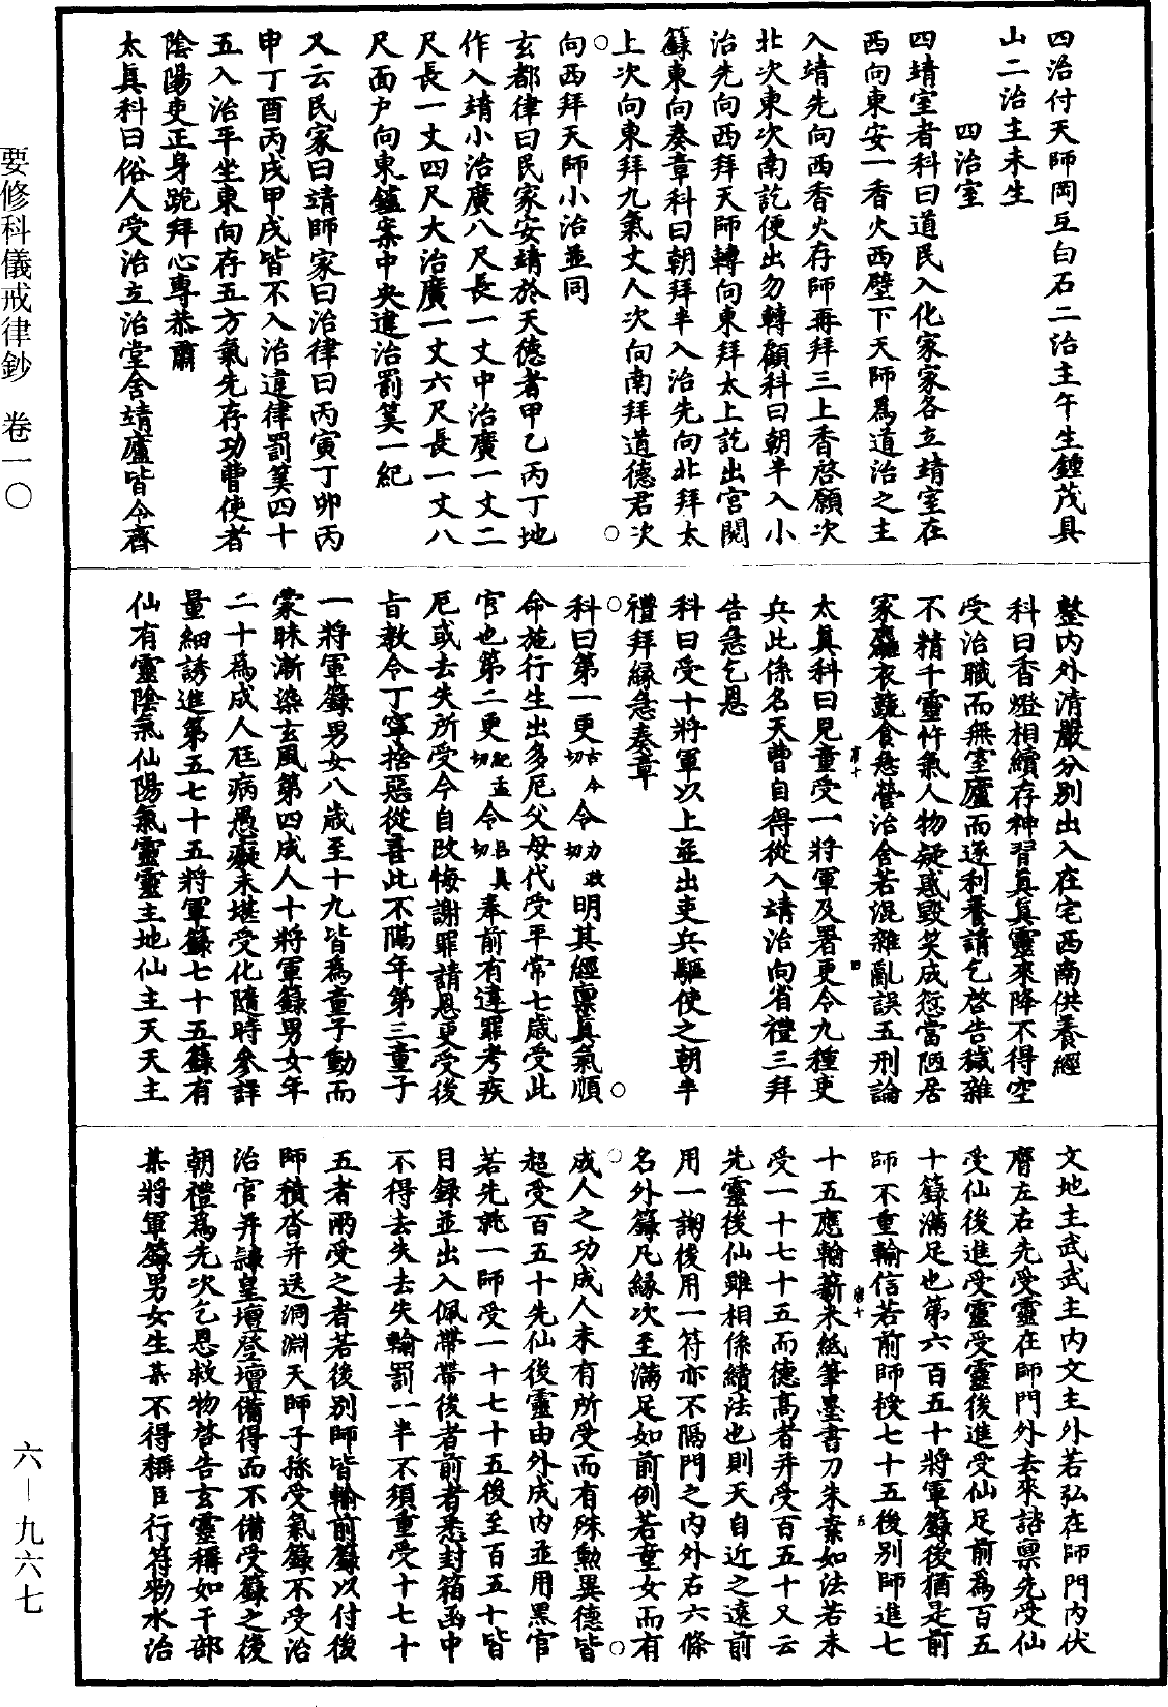 四治付天師岡互白石二治主午生鍾茂具
山二治主未生
四治室
四靖室者科曰道民入化家家各立靖室在
西向東安一香火西壁下天師爲道治之主
入靖先向西香火存師再拜三上香啓願次
北次東次南訖便出勿轉顧科曰朝半入小
治先向西拜天師轉向東拜太上訖出宮閱
籙東向奏章科曰朝拜半入治先向北拜太
上次向東拜九氣丈人次向南拜道德君次
向西拜天師小治並同
玄都律曰民家安靖於天德者甲乙丙丁地
作入靖小治廣八尺長一丈中治廣一丈二
尺長一丈四尺大治廣一丈六尺長一丈八
尺面戶向東鑪案中央違治罰筭一紀
又云民家曰靖師家曰治律曰丙寅丁卯丙
申丁酉丙戌甲戌皆不入治違律罰筭四十
五入治平坐東向存五方氣先存功曹使者
陰陽吏正身跪拜心專恭肅
太真科曰俗人受治立治堂舍靖廬皆令齊
整內外清嚴分別出入在宅西南供養經
科曰香燈相續存神習真真靈來降不得空
受治職而無室廬而逐利養請乞啓告穢雜
不精千靈忤氣人物疑惑毀笑成愆當陋居
家麤衣蔬食慈營治舍若混雜亂誤五刑論
太真科曰兒童受一將軍及署更令九種吏
兵此係名天曹自得從入靖治向省禮三拜
告急乞恩
科曰受十將軍以上並出吏兵驅使之朝半
禮拜緣急奏章
科曰第一更古今切令力政切明其經稟真氣順
命施行生出多厄父母代受平常七歲受此
官也第二更紀孟切令呂真切奉前有違罪考疾
厄或去失所受今自改悔謝罪請恩更受後
旨教令丁寧捨惡從善此不隔年第三童子
一將軍籙男女八歲至十九皆爲童子動而
蒙昧漸染玄風第四成人十將軍籙男女年
二十爲成人尫病愚癡未堪受化隨時參詳
量細誘進第五七十五將軍籙七十五籙有
仙有靈陰氣仙陽氣靈靈主地仙主天天主
文地主武武主內文主外若弘在師門內伏
膺左右先受靈在師門外去來諮稟先受仙
受仙後進受靈受靈後進受仙足前爲百五
十籙滿足也第六百五十將軍籙後猶是前
師不重輸信若前師授七十五後別師進七
十五應輸薪米紙筆墨書刀朱素如法若未
受一十七十五而德高者并受百五十又云
先靈後仙雖相係續法也則天自近之遠前
用一詢後用一符亦不隔門之內外右六條
名外籙凡緣次至滿足如前例若童女而有
成人之功成人未有所受而有殊勳異德皆
超受百五十先仙後靈由外成內並用黑官
若先就一師受一十七十五後至百五十皆
目錄並出入佩帶帶後者前者悉封箱函中
不得去失去失輸罰一半不須重受十七十
五者兩受之者若後別師皆輸前籙以付後
師積沓并送洞淵天師子孫受氣籙不受治
治官并謙皇壇登壇備得而不備受籙之後
朝禮爲先次乞恩救物啓告玄靈稱如干部
某將軍籙男女生某不得稱臣行符勑水治
要修科儀戒律鈔 卷一〇
六—九六七